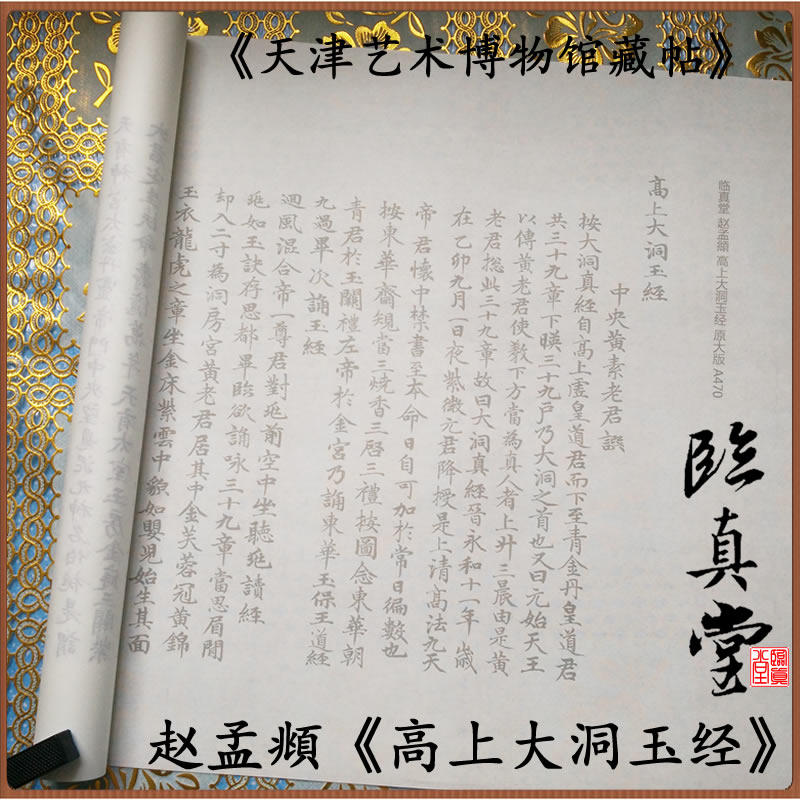 《天津艺术博物馆藏帖》
临真堂 赵孟頫 高上大洞玉经 原大版 A470
髙上大洞玉經
中央黄素老君譔
按大洞真經自高上虛皇道君而下至青金丹皇道君
共三十九章下暎三十九户乃大洞之首也又曰元始天王
以傳黄老君使教下方當為真人者上升三晨由是黄
老君総此三十九章故曰大洞真經晉永和十一年歲
在乙卯九月一日夜紫微元君降授是上清髙法九天
帝君懷中禁書至本命日自可加於常日徧數也
按東華齋規當三燒香三啓三禮按圖念東華朝
青君於玉闕禮左帝於金宮乃誦東華玉保王道經
九過畢次誦玉經
迴風混合帝一尊君對兆前空中坐聽兆讀經
兆如玉訣存思都畢臨欲誦咏三十九章當思眉間
却入二寸為洞房宮黄老君居其中金芙蓉冠黄錦
玉衣龍虎之章坐金床紫雲中貌如嬰兒始生其面
临真堂
赵孟頫《高上大洞玉经》